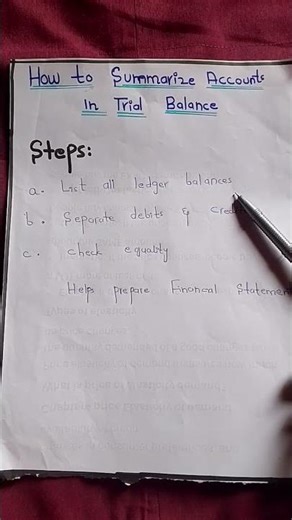 How to Summarize Accounts
In Trial Balance
Steps:
a. List all ledger balances
b. Separate debits &
c. check equality
Helps prepare Financial Statemen